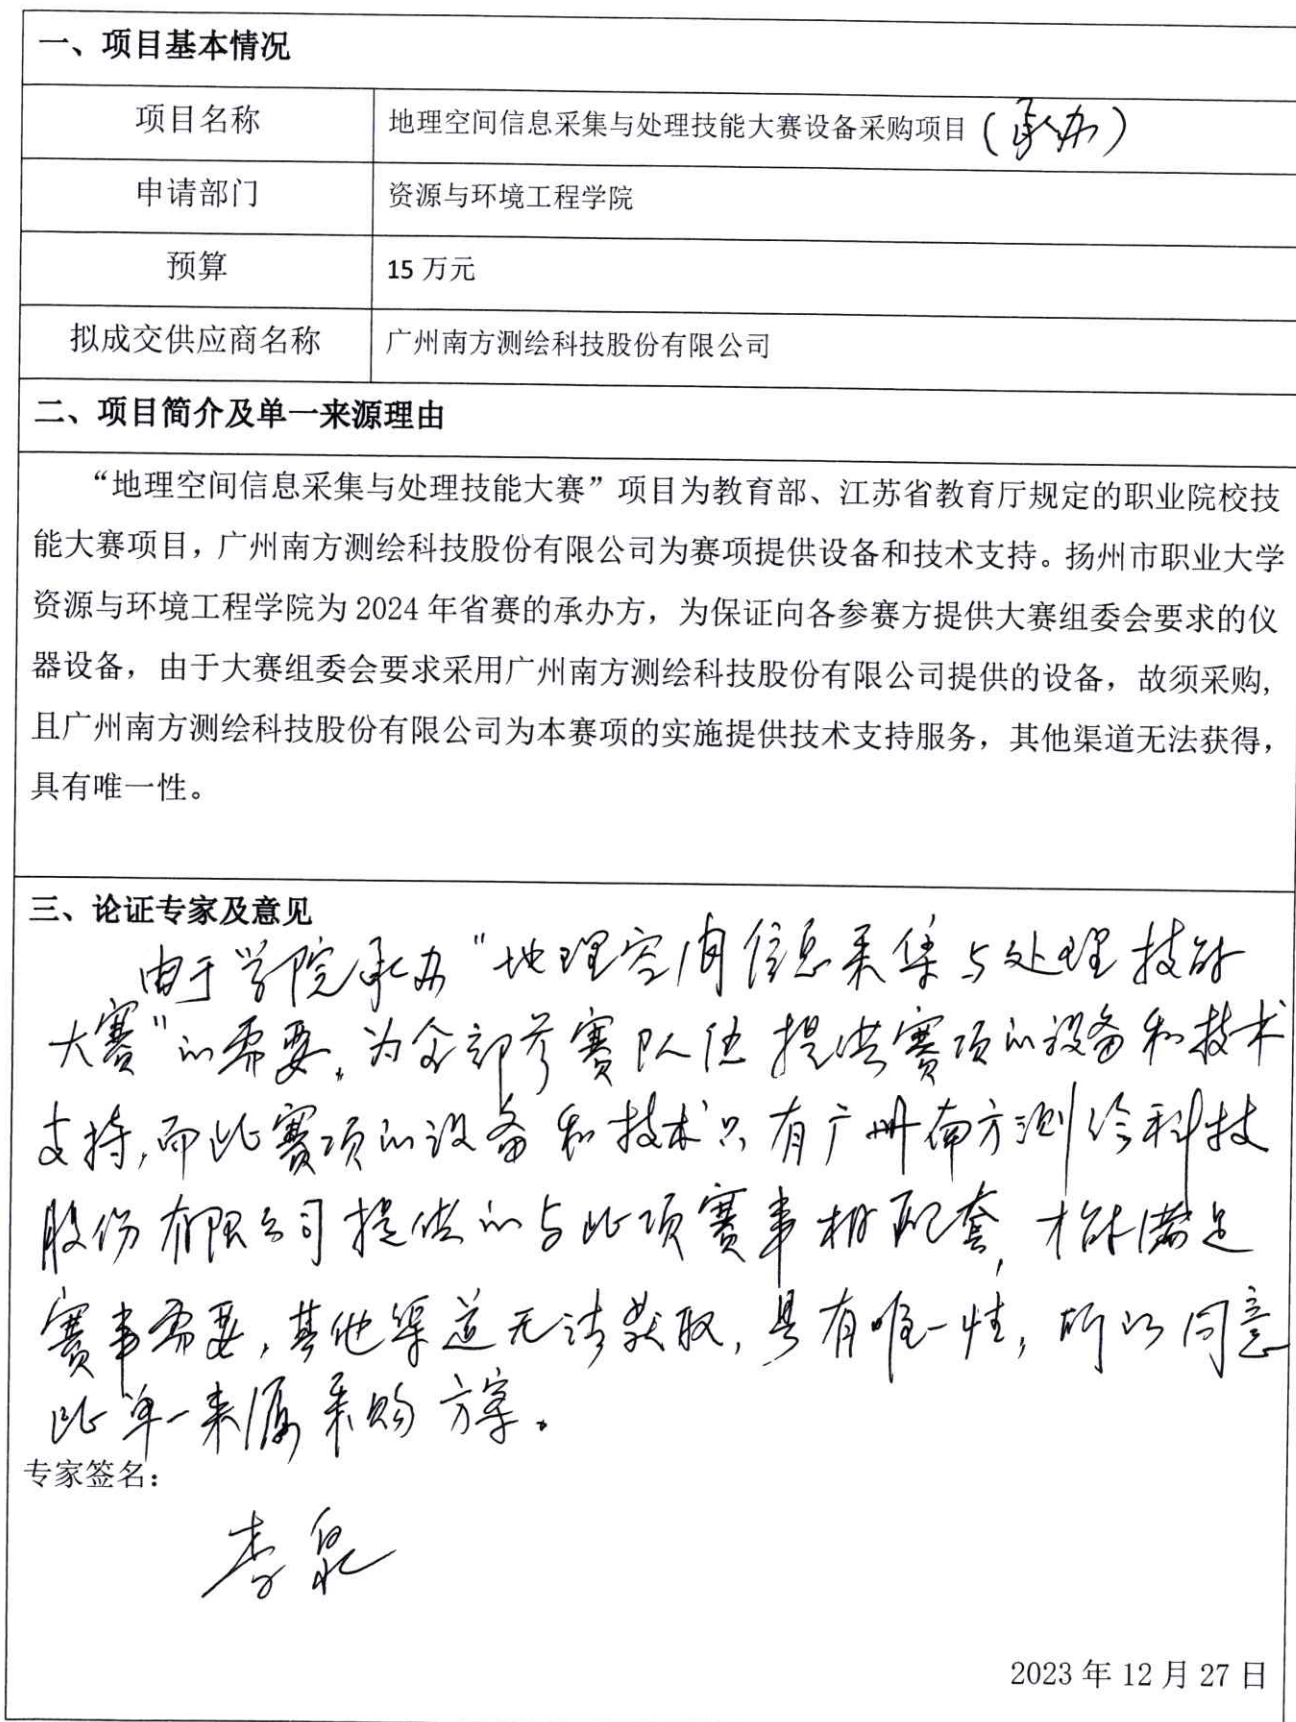 一、项目基本情况
项目名称 地理空间信息采集与处理技能大赛设备采购项目（承办）
申请部门 资源与环境工程学院
预算 15 万元
拟成交供应商名称 广州南方测绘科技股份有限公司
二、项目简介及单一来源理由
“地理空间信息采集与处理技能大赛”项目为教育部、江苏省教育厅规定的职业院校技
能大赛项目，广州南方测绘科技股份有限公司为赛项提供设备和技术支持。扬州市职业大学
资源与环境工程学院为 2024 年省赛的承办方，为保证向各参赛方提供大赛组委会要求的仪
器设备，由于大赛组委会要求采用广州南方测绘科技股份有限公司提供的设备，故须采购，
且广州南方测绘科技股份有限公司为本赛项的实施提供技术支持服务，其他渠道无法获得，
具有唯一性。
三、论证专家及意见
由于学院承办“地理空间信息采集与处理技能
大赛”的需要，为全部参赛队伍提供赛项的设备和技术
支持，而此赛项的设备和技术只有广州南方测绘科技
股份有限公司提供的与此项赛事相配套，才能满足
赛事需要，其他渠道无法获取，具有唯一性，所以同意
此单一来源采购方案。
专家签名：
李泉
2023 年 12 月 27 日